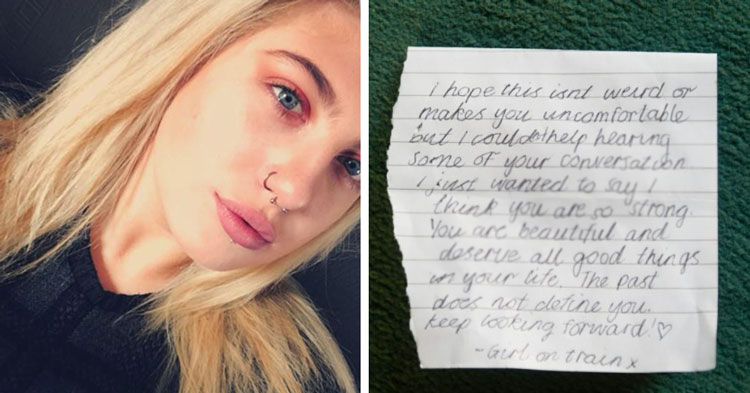 I hope this isnt weird or
makes you uncomfortable
but I couldnt help hearing
some of your conversation
I just wanted to say I
think you are so strong.
You are beautiful and
deserve all good things
in your life. The past
does not define you.
Keep looking forward! ♡
- Girl on train x